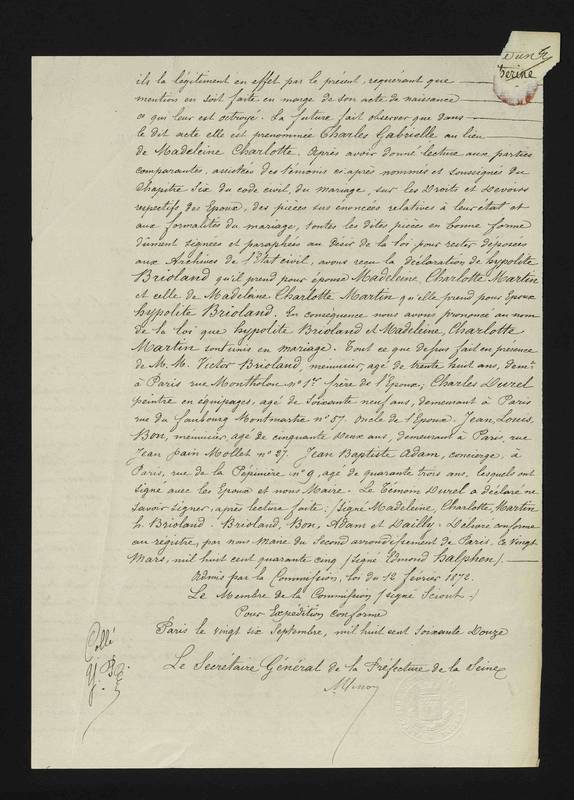 ils la légitiment en effet par le présent, requérant que
mention en soit faite en marge de son acte de naissance
ce qui leur est octroyé. La future fait observer que dans
le dit acte elle est prenommée Charles Gabrielle au lieu
de Madeleine Charlotte. Après avoir donné lecture aux parties
comparantes, assistées des témoins ci après nommés et soussignés du
Chapitre Six du code civil, du mariage, sur les Droits et Devoirs
respectifs des Epoux, des pièces sus énoncées relatives à leur état et
aux formalités du mariage, toutes les dites pièces en bonne forme
dûment signées et paraphées au Desir de la loi pour rester déposées
aux Archives de l'Etat civil, avons reçu la déclaration de hypolite
Brioland qu'il prend pour épouse Madeleine, Charlotte Martin
et celle de Madelaine Charlotte Martin qu'elle prend pour Epoux
hypolite Brioland. En conséquence nous avons prononcé au nom
de la loi que hypolite Brioland et Madeleine, Charlotte
Martin sont unis en mariage. Tout ce que dessus fait en présence
de M.M. Victor Brioland, menuisier, agé de trente huit ans, demt
à Paris rue Montholon no 1er frère de l'Epoux; Charles Durel
peintre en équipages, agé de soixante neuf ans, demeurant à Paris
rue du faubourg Montmartre no 57. oncle de l'Epoux. Jean Louis,
Bon, menuisier, agé de cinquante Deux ans, demeurant à Paris, rue
Jean Pain Mollet no 27. Jean Baptiste Adam, concierge, à
Paris, rue de la Pépinière no 9, agé de quarante trois ans, lesquels ont
signé avec les Epoux et nous Maire. Le Témoin Durel a déclaré ne
savoir signer, après lecture faite: /signé Madeleine, Charlotte, Martin
h. Brioland. Brioland, Bon, Adam et Dailly. Délivré conforme
au registre, par nous Maire du Second arrondissement de Paris, le vingt
Mars, mil huit cent quarante cinq /Signé Edmond halphen/.
Admis par la Commission, loi du 12 février 1872.
Le Membre de la Commission /signé Sciout./
Pour Expédition conforme
Paris le vingt six Septembre, mil huit cent soixante Douze
Le Secrétaire Général de la Préfecture de la Seine
Collé